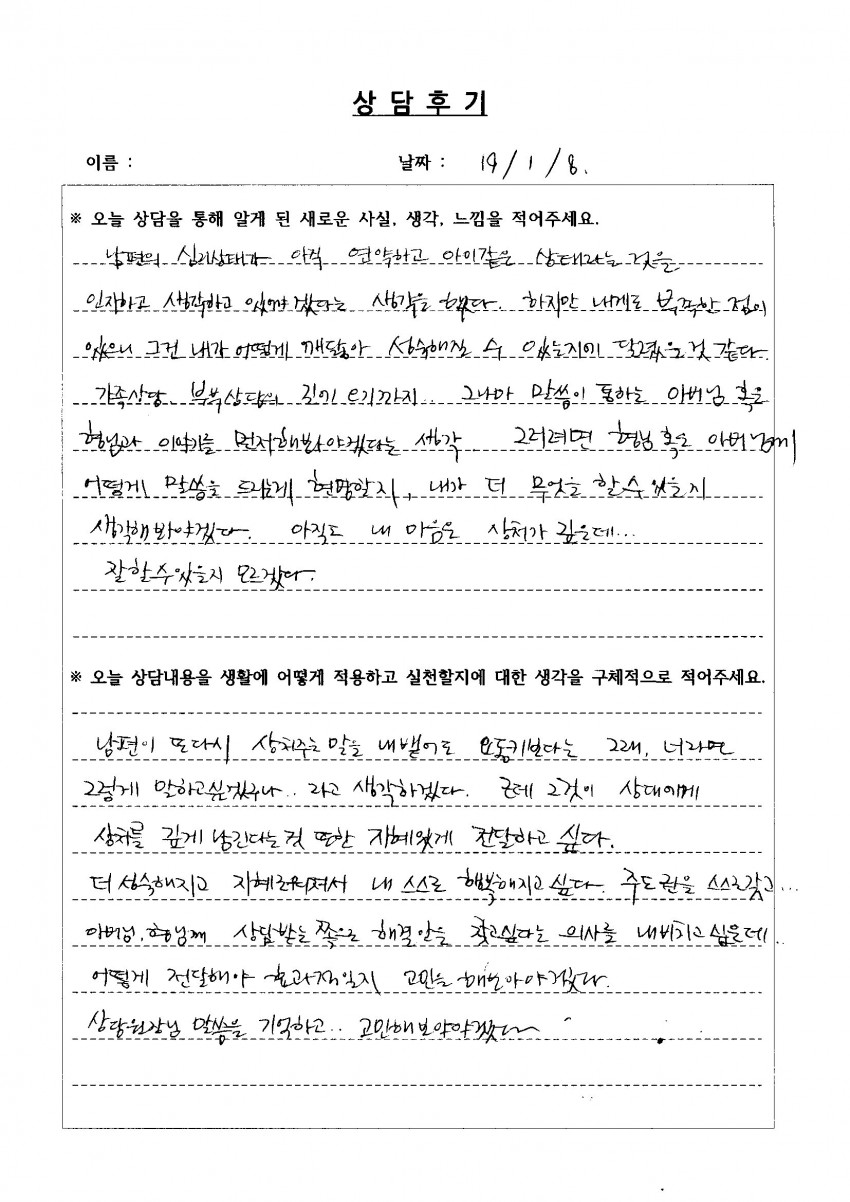 상 담 후 기
이름 : 날짜 : 19/1/8.
※ 오늘 상담을 통해 알게 된 새로운 사실, 생각, 느낌을 적어주세요.
남편의 심리상태가 아직 연약하고 아이같은 상태라는 것을
인지하고 생각하고 있어야겠다는 생각을 했다. 하지만 내게도 부족한 점이
있으니 그건 내가 어떻게 깨닫아 성숙해질 수 있는지에 달렸을것 같다.
가족상담, 부부상담의 길이 까지.. 그나마 말씀이 통하는 아버님 혹은
형님과 이야기를 먼저해봐야겠다는 생각. 그러려면 형님 혹은 아버님께
어떻게 말씀을 드리는게 현명할지, 내가 더 무엇을 할수있을지
생각해봐야겠다. 아직도 내 마음은 상처가 깊은데...
잘할수있을지 모르겠다.
※ 오늘 상담내용을 생활에 어떻게 적용하고 실천할지에 대한 생각을 구체적으로 적어주세요.
남편이 또다시 상처주는 말을 내뱉어도 요동키보다는 그래, 너라면
그렇게 말하고싶겠구나.. 라고 생각하겠다. 근데 그것이 상대에게
상처를 깊게 남긴다는것 또한 지혜있게 전달하고 싶다.
더 성숙해지고 지혜로워져서 내 스스로 행복해지고 싶다. 주도권을 스스로갖고...
아버님, 형님께 상담받는 쪽으로 해결안을 찾고싶다는 의사를 내비치고 싶은데..
어떻게 전달해야 효과적일지 고민을 해보아야겠다.
상담원장님 말씀을 기억하고.. 고민해보아야겠다